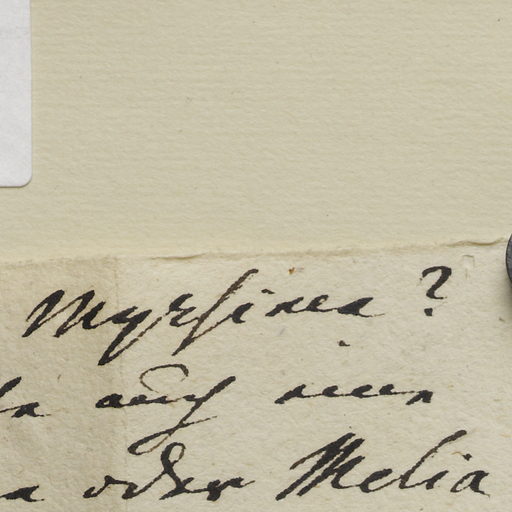 Myrsinea?
auch eine
oder Melia